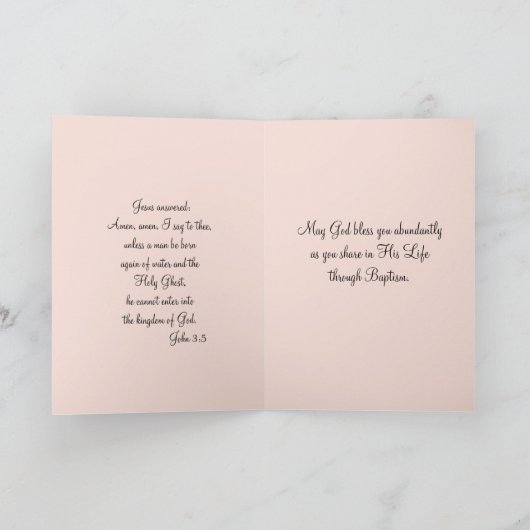 Jesus answered:
Amen, amen, I say to thee,
unless a man be born
again of water and the
Holy Ghost,
he cannot enter into
the kingdom of God.
John 3:5
May God bless you abundantly
as you share in His Life
through Baptism.